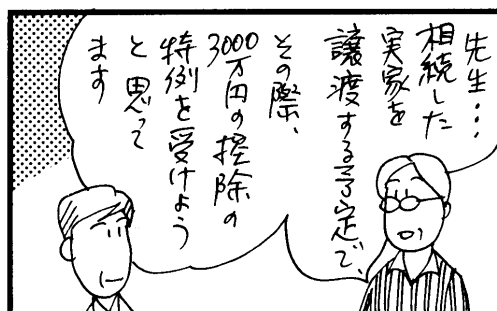 先生・・・
相続した
実家を
譲渡する予定で、
その際、
3000
万円の控除の
特例を受けよう
と思って
ます